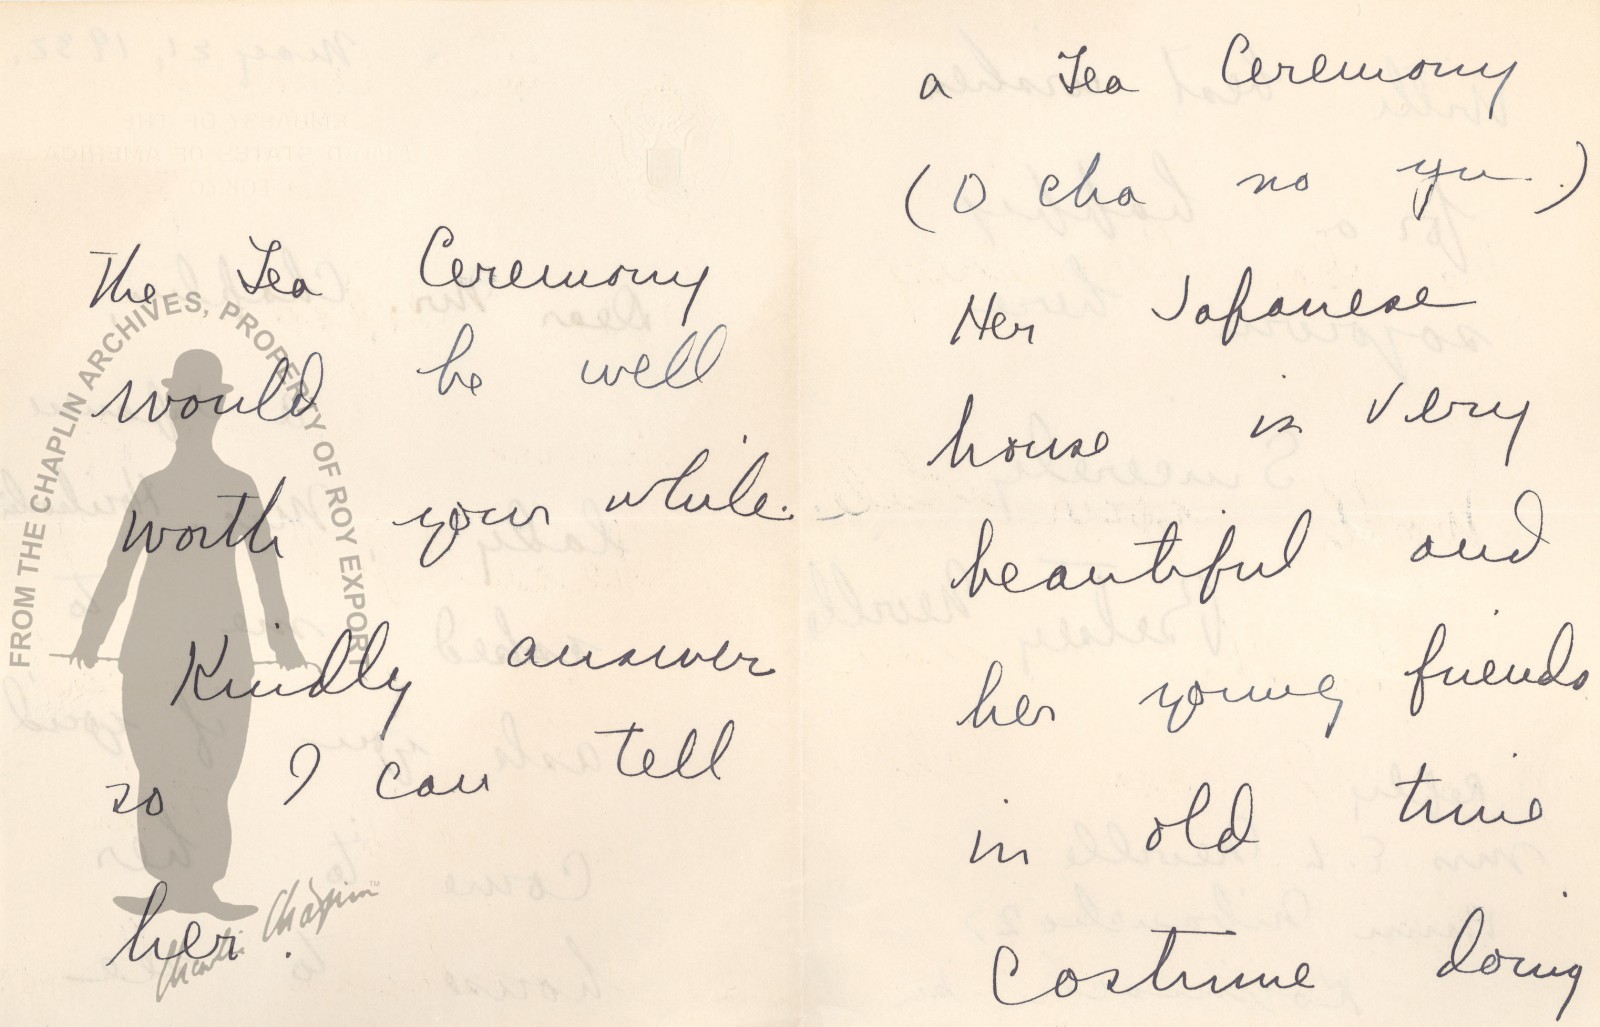 The Tea Ceremony
would be well
worth your while.
Kindly answer
so I can tell
her.
FROM THE CHAPLIN ARCHIVES, PROPERTY OF ROY EXPORT
Charlie Chaplin™
a Tea Ceremony
(O cha no yu.)
Her Japanese
house is very
beautiful and
her young friends
in old time
costume doing